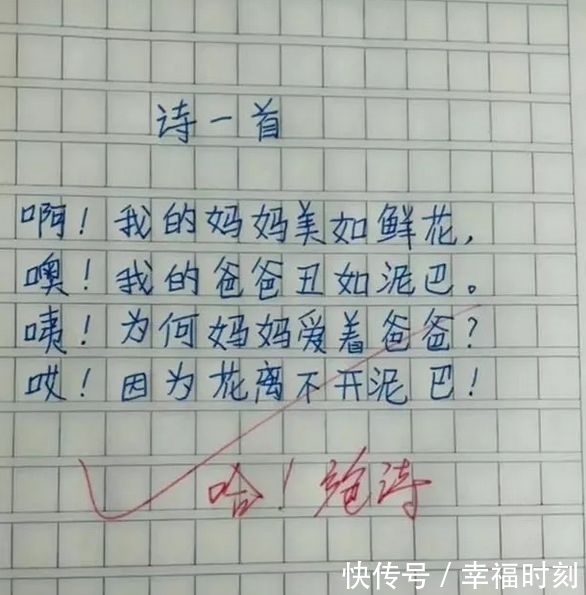 诗一首
啊！我的妈妈美如鲜花，
噢！我的爸爸丑如泥巴。
咦！为何妈妈爱着爸爸？
哎！因为花离不开泥巴！
哈！绝诗
快传号/幸福时刻